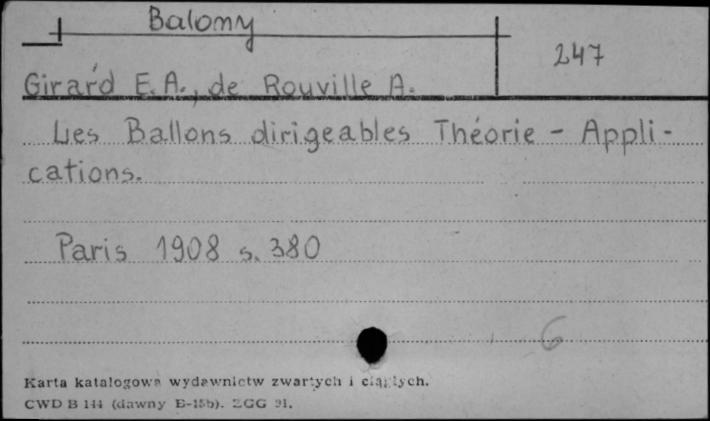 Balony
247
Girard E. A., de Rouville A.
Les Ballons dirigeables Théorie - Appli-
cations.
Paris 1908 s. 380
6
Karta katalogowa wydawnictw zwartych i ciągłych.
CWD B 144 (dawny B-15b). ZGG 91.